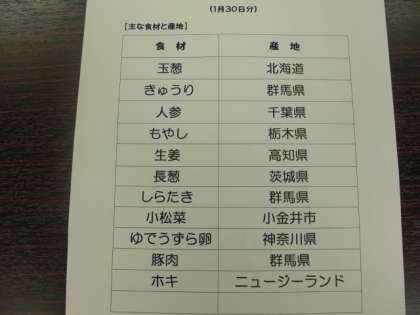 (1月30日分)
【主な食材と産地】
食 材 産 地
玉葱 北海道
きゅうり 群馬県
人参 千葉県
もやし 栃木県
生姜 高知県
長葱 茨城県
しらたき 群馬県
小松菜 小金井市
ゆでうずら卵 神奈川県
豚肉 群馬県
ホキ ニュージーランド